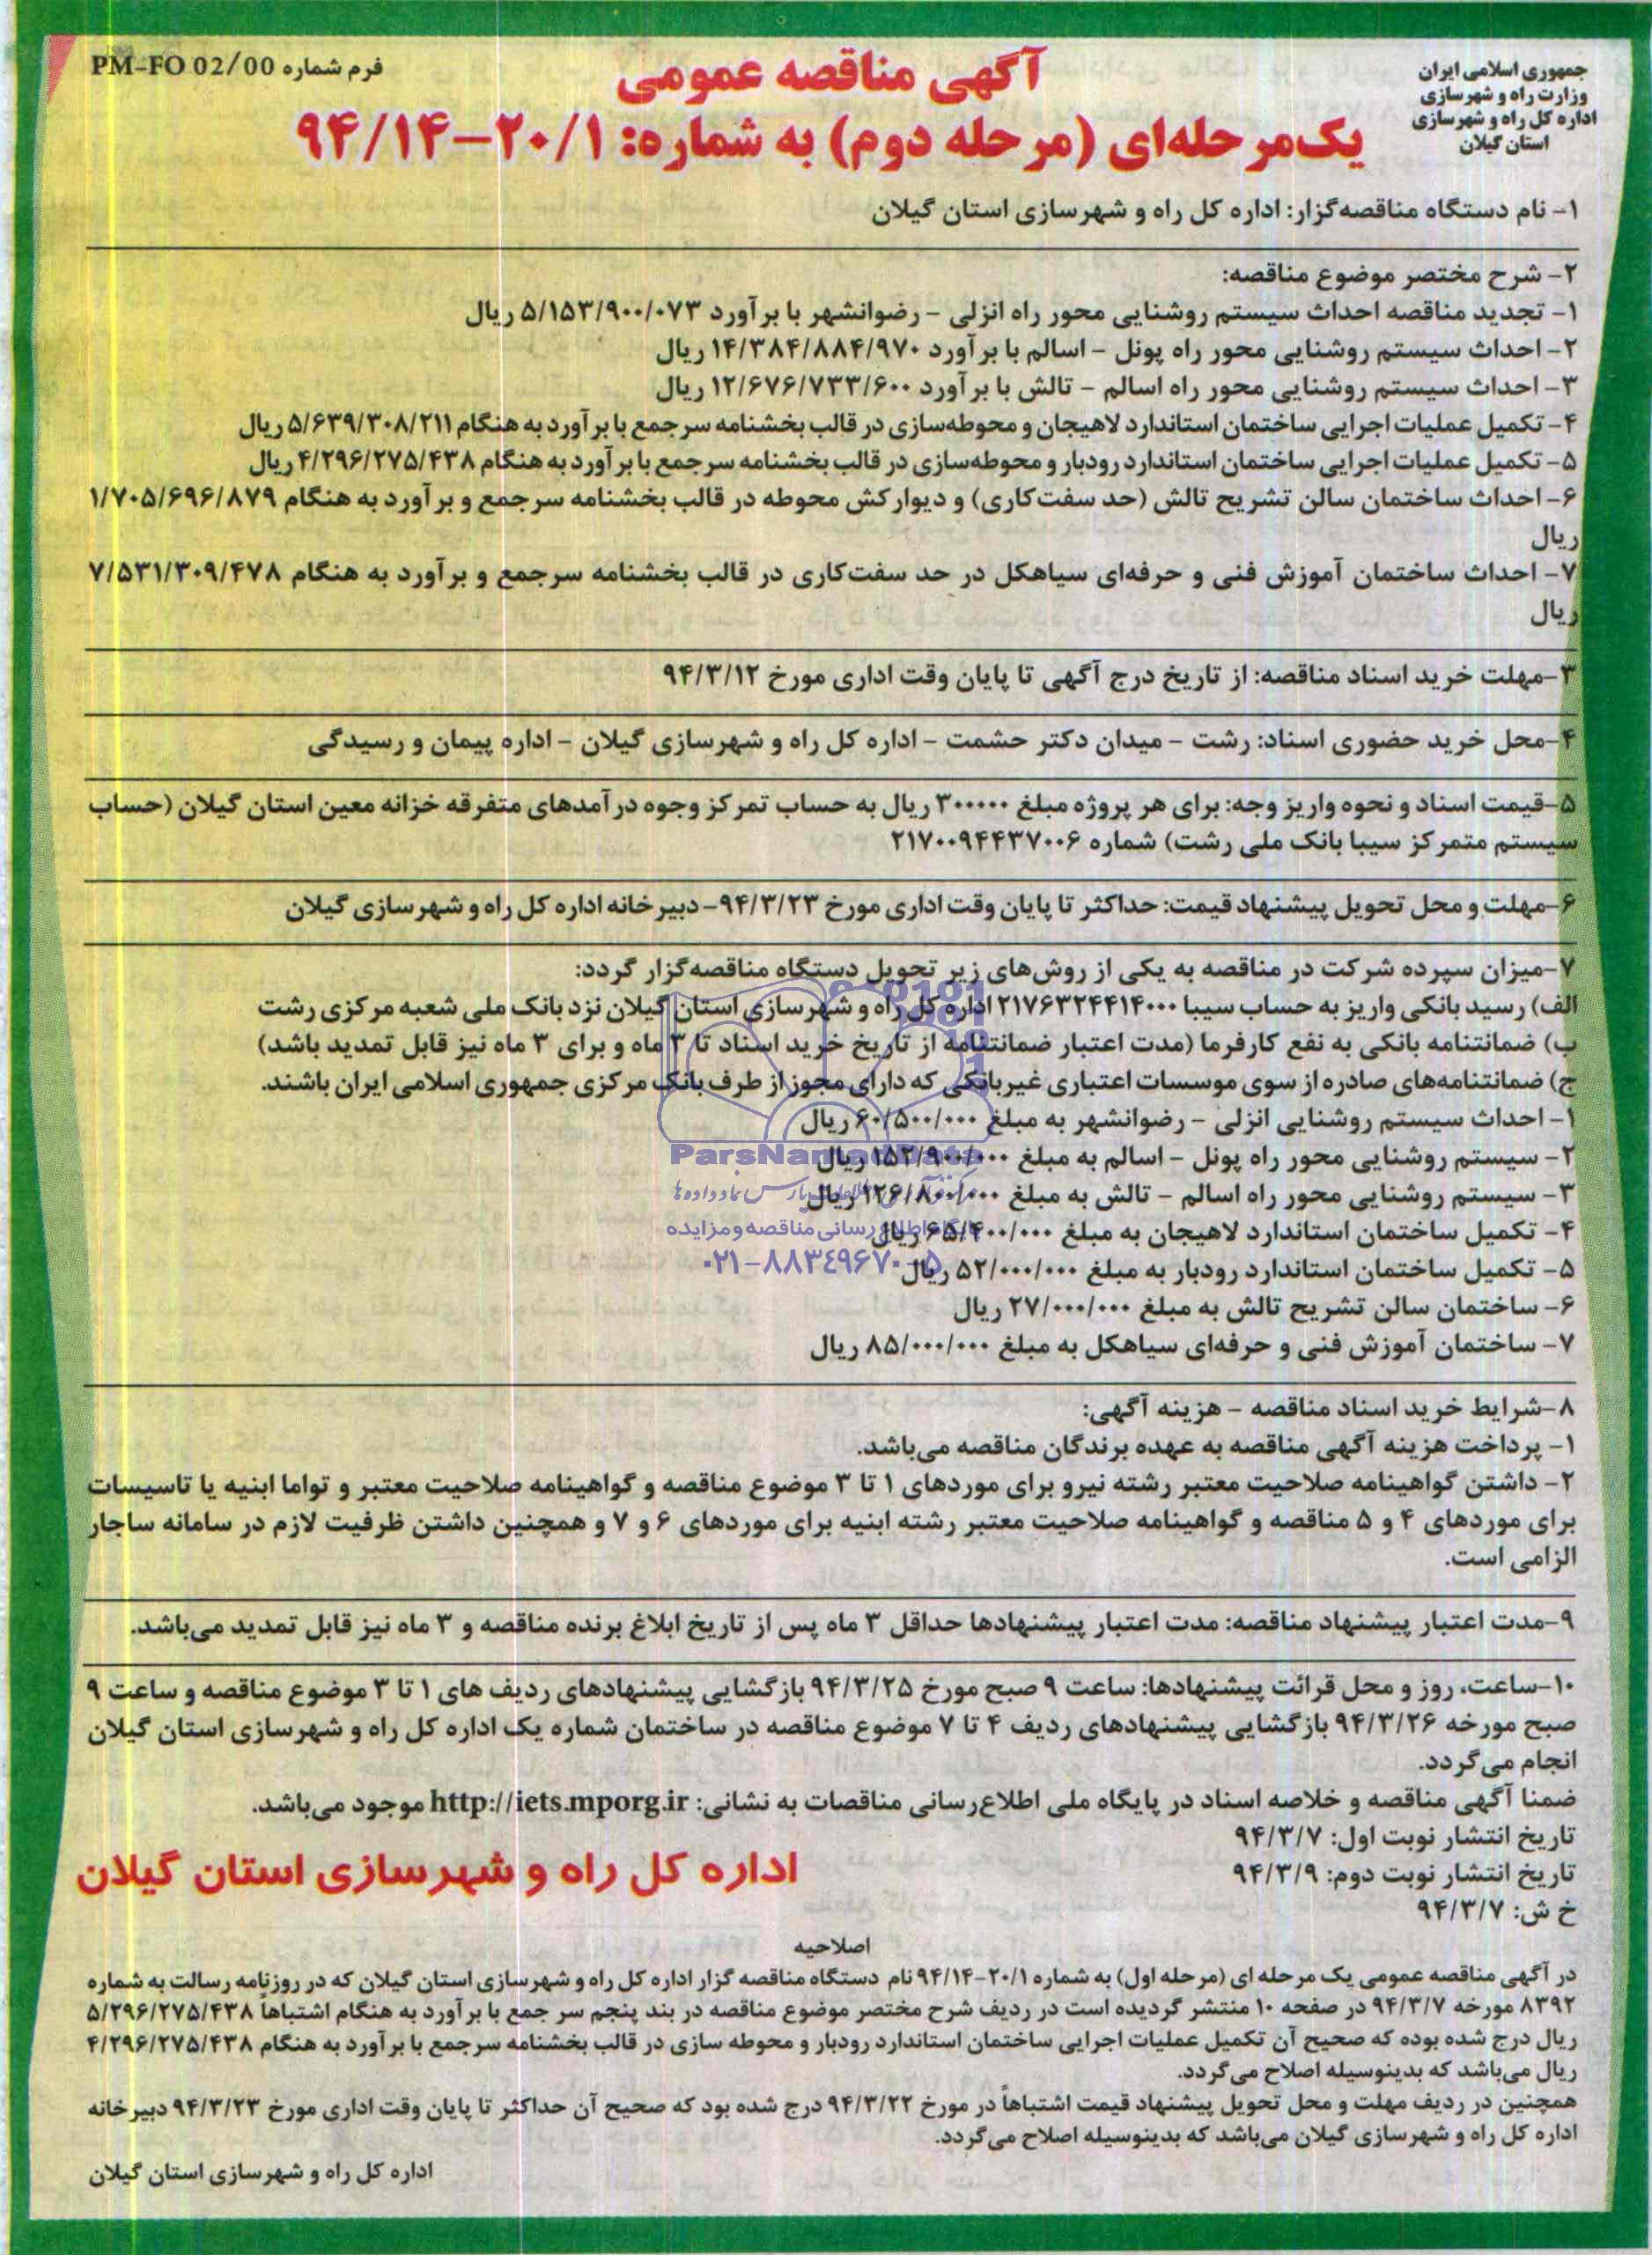 جمهوری اسلامی ایران
وزارت راه و شهرسازی
اداره کل راه و شهرسازی
استان گیلان
آگهی مناقصه عمومی
فرم شماره PM-FO 02/00
یک‌مرحله‌ای (مرحله دوم) به شماره: ۲۰/۱-۹۴/۱۴
۱- نام دستگاه مناقصه‌گزار: اداره کل راه و شهرسازی استان گیلان
۲- شرح مختصر موضوع مناقصه:
۱- تجدید مناقصه احداث سیستم روشنایی محور راه انزلی - رضوانشهر با برآورد ۵/۱۵۳/۹۰۰/۰۷۳ ریال
۲- احداث سیستم روشنایی محور راه پونل - اسالم با برآورد ۱۴/۳۸۴/۸۸۴/۹۷۰ ریال
۳- احداث سیستم روشنایی محور راه اسالم - تالش با برآورد ۱۲/۶۷۶/۷۳۳/۶۰۰ ریال
۴- تکمیل عملیات اجرایی ساختمان استاندارد لاهیجان و محوطه‌سازی در قالب بخشنامه سرجمع با برآورد به هنگام ۵/۶۳۹/۳۰۸/۲۱۱ ریال
۵- تکمیل عملیات اجرایی ساختمان استاندارد رودبار و محوطه‌سازی در قالب بخشنامه سرجمع با برآورد به هنگام ۴/۲۹۶/۲۷۵/۴۳۸ ریال
۶- احداث ساختمان سالن تشریح تالش (حد سفت‌کاری) و دیوارکش محوطه در قالب بخشنامه سرجمع و برآورد به هنگام ۱/۷۰۵/۶۹۶/۸۷۹
ریال
۷- احداث ساختمان آموزش فنی و حرفه‌ای سیاهکل در حد سفت‌کاری در قالب بخشنامه سرجمع و برآورد به هنگام ۷/۵۳۱/۳۰۹/۴۷۸
ریال
۳-مهلت خرید اسناد مناقصه: از تاریخ درج آگهی تا پایان وقت اداری مورخ ۹۴/۳/۱۲
۴-محل خرید حضوری اسناد: رشت - میدان دکتر حشمت - اداره کل راه و شهرسازی گیلان - اداره پیمان و رسیدگی
۵-قیمت اسناد و نحوه واریز وجه: برای هر پروژه مبلغ ۳۰۰۰۰۰ ریال به حساب تمرکز وجوه درآمدهای متفرقه خزانه معین استان گیلان (حساب
سیستم متمرکز سیبا بانک ملی رشت) شماره ۲۱۷۰۰۹۴۴۳۷۰۰۶
۶-مهلت و محل تحویل پیشنهاد قیمت: حداکثر تا پایان وقت اداری مورخ ۹۴/۳/۲۳- دبیرخانه اداره کل راه و شهرسازی گیلان
۷-میزان سپرده شرکت در مناقصه به یکی از روش‌های زیر تحویل دستگاه مناقصه‌گزار گردد:
الف) رسید بانکی واریز به حساب سیبا ۲۱۷۶۳۲۴۴۱۴۰۰۰ اداره کل راه و شهرسازی استان گیلان نزد بانک ملی شعبه مرکزی رشت
ب) ضمانتنامه بانکی به نفع کارفرما (مدت اعتبار ضمانتنامه از تاریخ خرید اسناد تا ۳ ماه و برای ۳ ماه نیز قابل تمدید باشد)
ج) ضمانتنامه‌های صادره از سوی موسسات اعتباری غیربانکی که دارای مجوز از طرف بانک مرکزی جمهوری اسلامی ایران باشند.
۱- احداث سیستم روشنایی انزلی - رضوانشهر به مبلغ ۶۰/۵۰۰/۰۰۰ ریال
۲- سیستم روشنایی محور راه پونل - اسالم به مبلغ ۱۵۲/۹۰۰/۰۰۰ ریال
ParsNamadData
۳- سیستم روشنایی محور راه اسالم - تالش به مبلغ ۱۲۶/۸۰۰/۰۰۰ ریال
پارس نماد داده‌ها
۴- تکمیل ساختمان استاندارد لاهیجان به مبلغ ۶۵/۴۰۰/۰۰۰ ریال
پایگاه اطلاع رسانی مناقصه و مزایده
۵- تکمیل ساختمان استاندارد رودبار به مبلغ ۵۲/۰۰۰/۰۰۰ ریال
۰۲۱-۸۸۳۴۹۶۷۰-۵
۶- ساختمان سالن تشریح تالش به مبلغ ۲۷/۰۰۰/۰۰۰ ریال
۷- ساختمان آموزش فنی و حرفه‌ای سیاهکل به مبلغ ۸۵/۰۰۰/۰۰۰ ریال
۸-شرایط خرید اسناد مناقصه - هزینه آگهی:
۱- پرداخت هزینه آگهی مناقصه به عهده برندگان مناقصه می‌باشد.
۲- داشتن گواهینامه صلاحیت معتبر رشته نیرو برای موردهای ۱ تا ۳ موضوع مناقصه و گواهینامه صلاحیت معتبر و تواما ابنیه یا تاسیسات
برای موردهای ۴ و ۵ مناقصه و گواهینامه صلاحیت معتبر رشته ابنیه برای موردهای ۶ و ۷ و همچنین داشتن ظرفیت لازم در سامانه ساجار
الزامی است.
۹-مدت اعتبار پیشنهاد مناقصه: مدت اعتبار پیشنهادها حداقل ۳ ماه پس از تاریخ ابلاغ برنده مناقصه و ۳ ماه نیز قابل تمدید می‌باشد.
۱۰-ساعت، روز و محل قرائت پیشنهادها: ساعت ۹ صبح مورخ ۹۴/۳/۲۵ بازگشایی پیشنهادهای ردیف های ۱ تا ۳ موضوع مناقصه و ساعت ۹
صبح مورخه ۹۴/۳/۲۶ بازگشایی پیشنهادهای ردیف ۴ تا ۷ موضوع مناقصه در ساختمان شماره یک اداره کل راه و شهرسازی استان گیلان
انجام می‌گردد.
ضمنا آگهی مناقصه و خلاصه اسناد در پایگاه ملی اطلاع‌رسانی مناقصات به نشانی: http://iets.mporg.ir موجود می‌باشد.
تاریخ انتشار نوبت اول: ۹۴/۳/۷
تاریخ انتشار نوبت دوم: ۹۴/۳/۹
اداره کل راه و شهرسازی استان گیلان
خ ش: ۹۴/۳/۷
اصلاحیه
در آگهی مناقصه عمومی یک مرحله ای (مرحله اول) به شماره ۲۰/۱-۹۴/۱۴ نام دستگاه مناقصه گزار اداره کل راه و شهرسازی استان گیلان که در روزنامه رسالت به شماره
۸۳۹۲ مورخه ۹۴/۳/۷ در صفحه ۱۰ منتشر گردیده است در ردیف شرح مختصر موضوع مناقصه در بند پنجم سر جمع با برآورد به هنگام اشتباهاً ۵/۲۹۶/۲۷۵/۴۳۸
ریال درج شده بوده که صحیح آن تکمیل عملیات اجرایی ساختمان استاندارد رودبار و محوطه سازی در قالب بخشنامه سرجمع با برآورد به هنگام ۴/۲۹۶/۲۷۵/۴۳۸
ریال می‌باشد که بدینوسیله اصلاح می‌گردد.
همچنین در ردیف مهلت و محل تحویل پیشنهاد قیمت اشتباهاً در مورخ ۹۴/۳/۲۲ درج شده بود که صحیح آن حداکثر تا پایان وقت اداری مورخ ۹۴/۳/۲۳ دبیرخانه
اداره کل راه و شهرسازی گیلان می‌باشد که بدینوسیله اصلاح می‌گردد.
اداره کل راه و شهرسازی استان گیلان